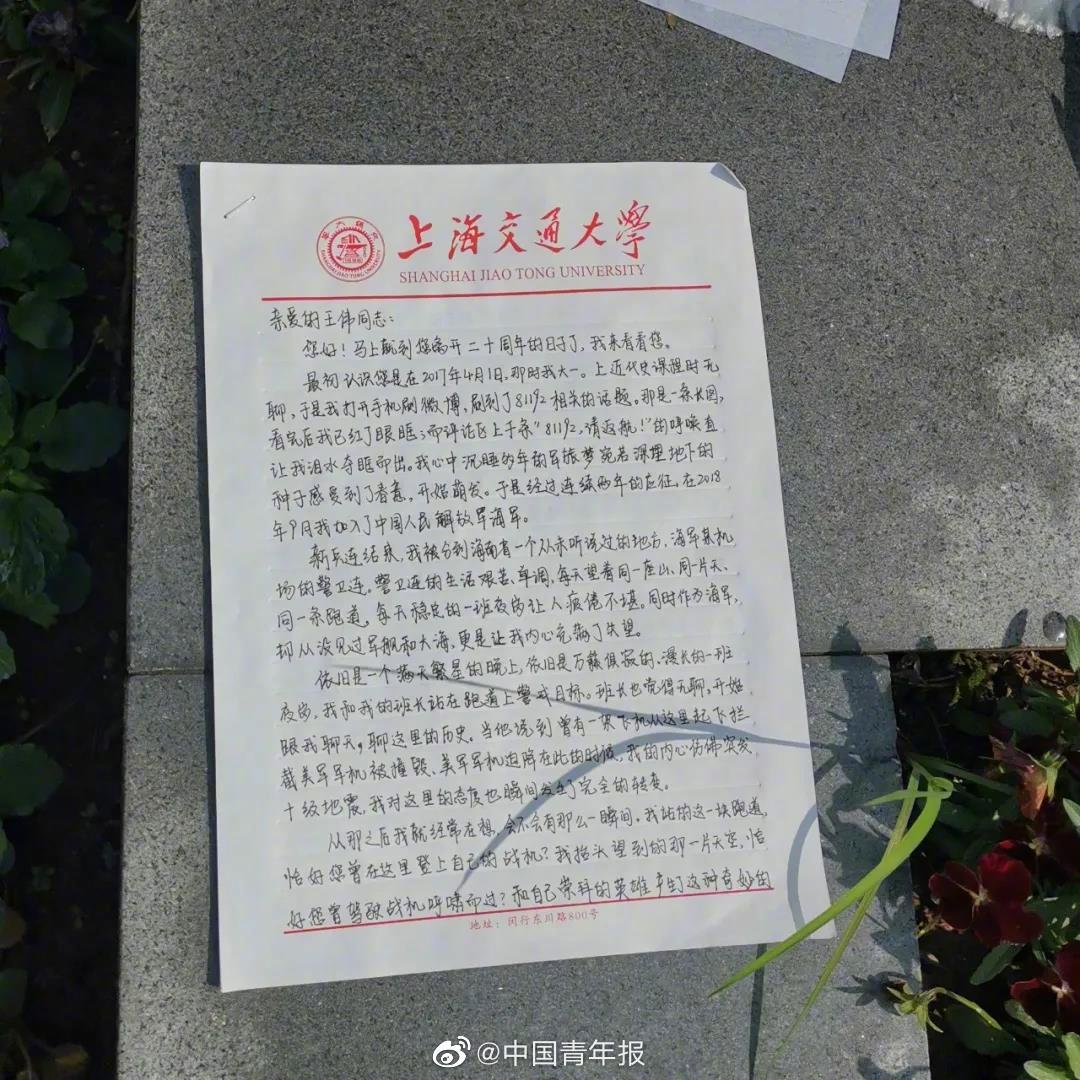 上海交通大學
SHANGHAI JIAO TONG UNIVERSITY
亲爱的王伟同志：
您好！马上就到您离开二十周年的日子了，我来看看您。
最初认识您是在2017年4月1日，那时我大一。上近代史课程时无
聊，于是我打开手机刷微博，刷到了81192相关的话题。那是一条长图，
看完后我已红了眼眶；而评论区上千条“81192，请返航！”的呼唤直
让我泪水夺眶而出。我心中沉睡多年的军旅梦宛若深埋地下的
种子感受到了春意，开始萌发。于是经过连续两年的应征，在2018
年9月我加入了中国人民解放军海军。
新兵连结束，我被分到海南省一个从未听说过的地方，海军某机
场的警卫连。警卫连的生活艰苦、单调，每天望着同一座山、同一片天、
同一条跑道，每天稳定的一班夜岗让人疲倦不堪。同时作为海军，
却从没见过军舰和大海，更是让我内心充满了失望。
依旧是一个满天繁星的晚上，依旧是万籁俱寂的、漫长的一班
夜岗，我和我的班长站在跑道上警戒目标。班长也觉得无聊，开始
跟我聊天，聊这里的历史。当他说到曾有一架飞机从这里起飞拦
截美军军机被撞毁、美军军机迫降在此的时候，我的内心仿佛突发
十级地震，我对这里的态度也瞬间发生了完全的转变。
从那之后我就经常在想，会不会有那么一瞬间，我站的这一块跑道，
恰好您曾在这里登上自己的战机？我抬头望到的那一片天空，恰
好您曾驾驶战机呼啸而过？和自己崇拜的英雄产生了这种奇妙的
地址：闵行东川路800号
@中国青年报